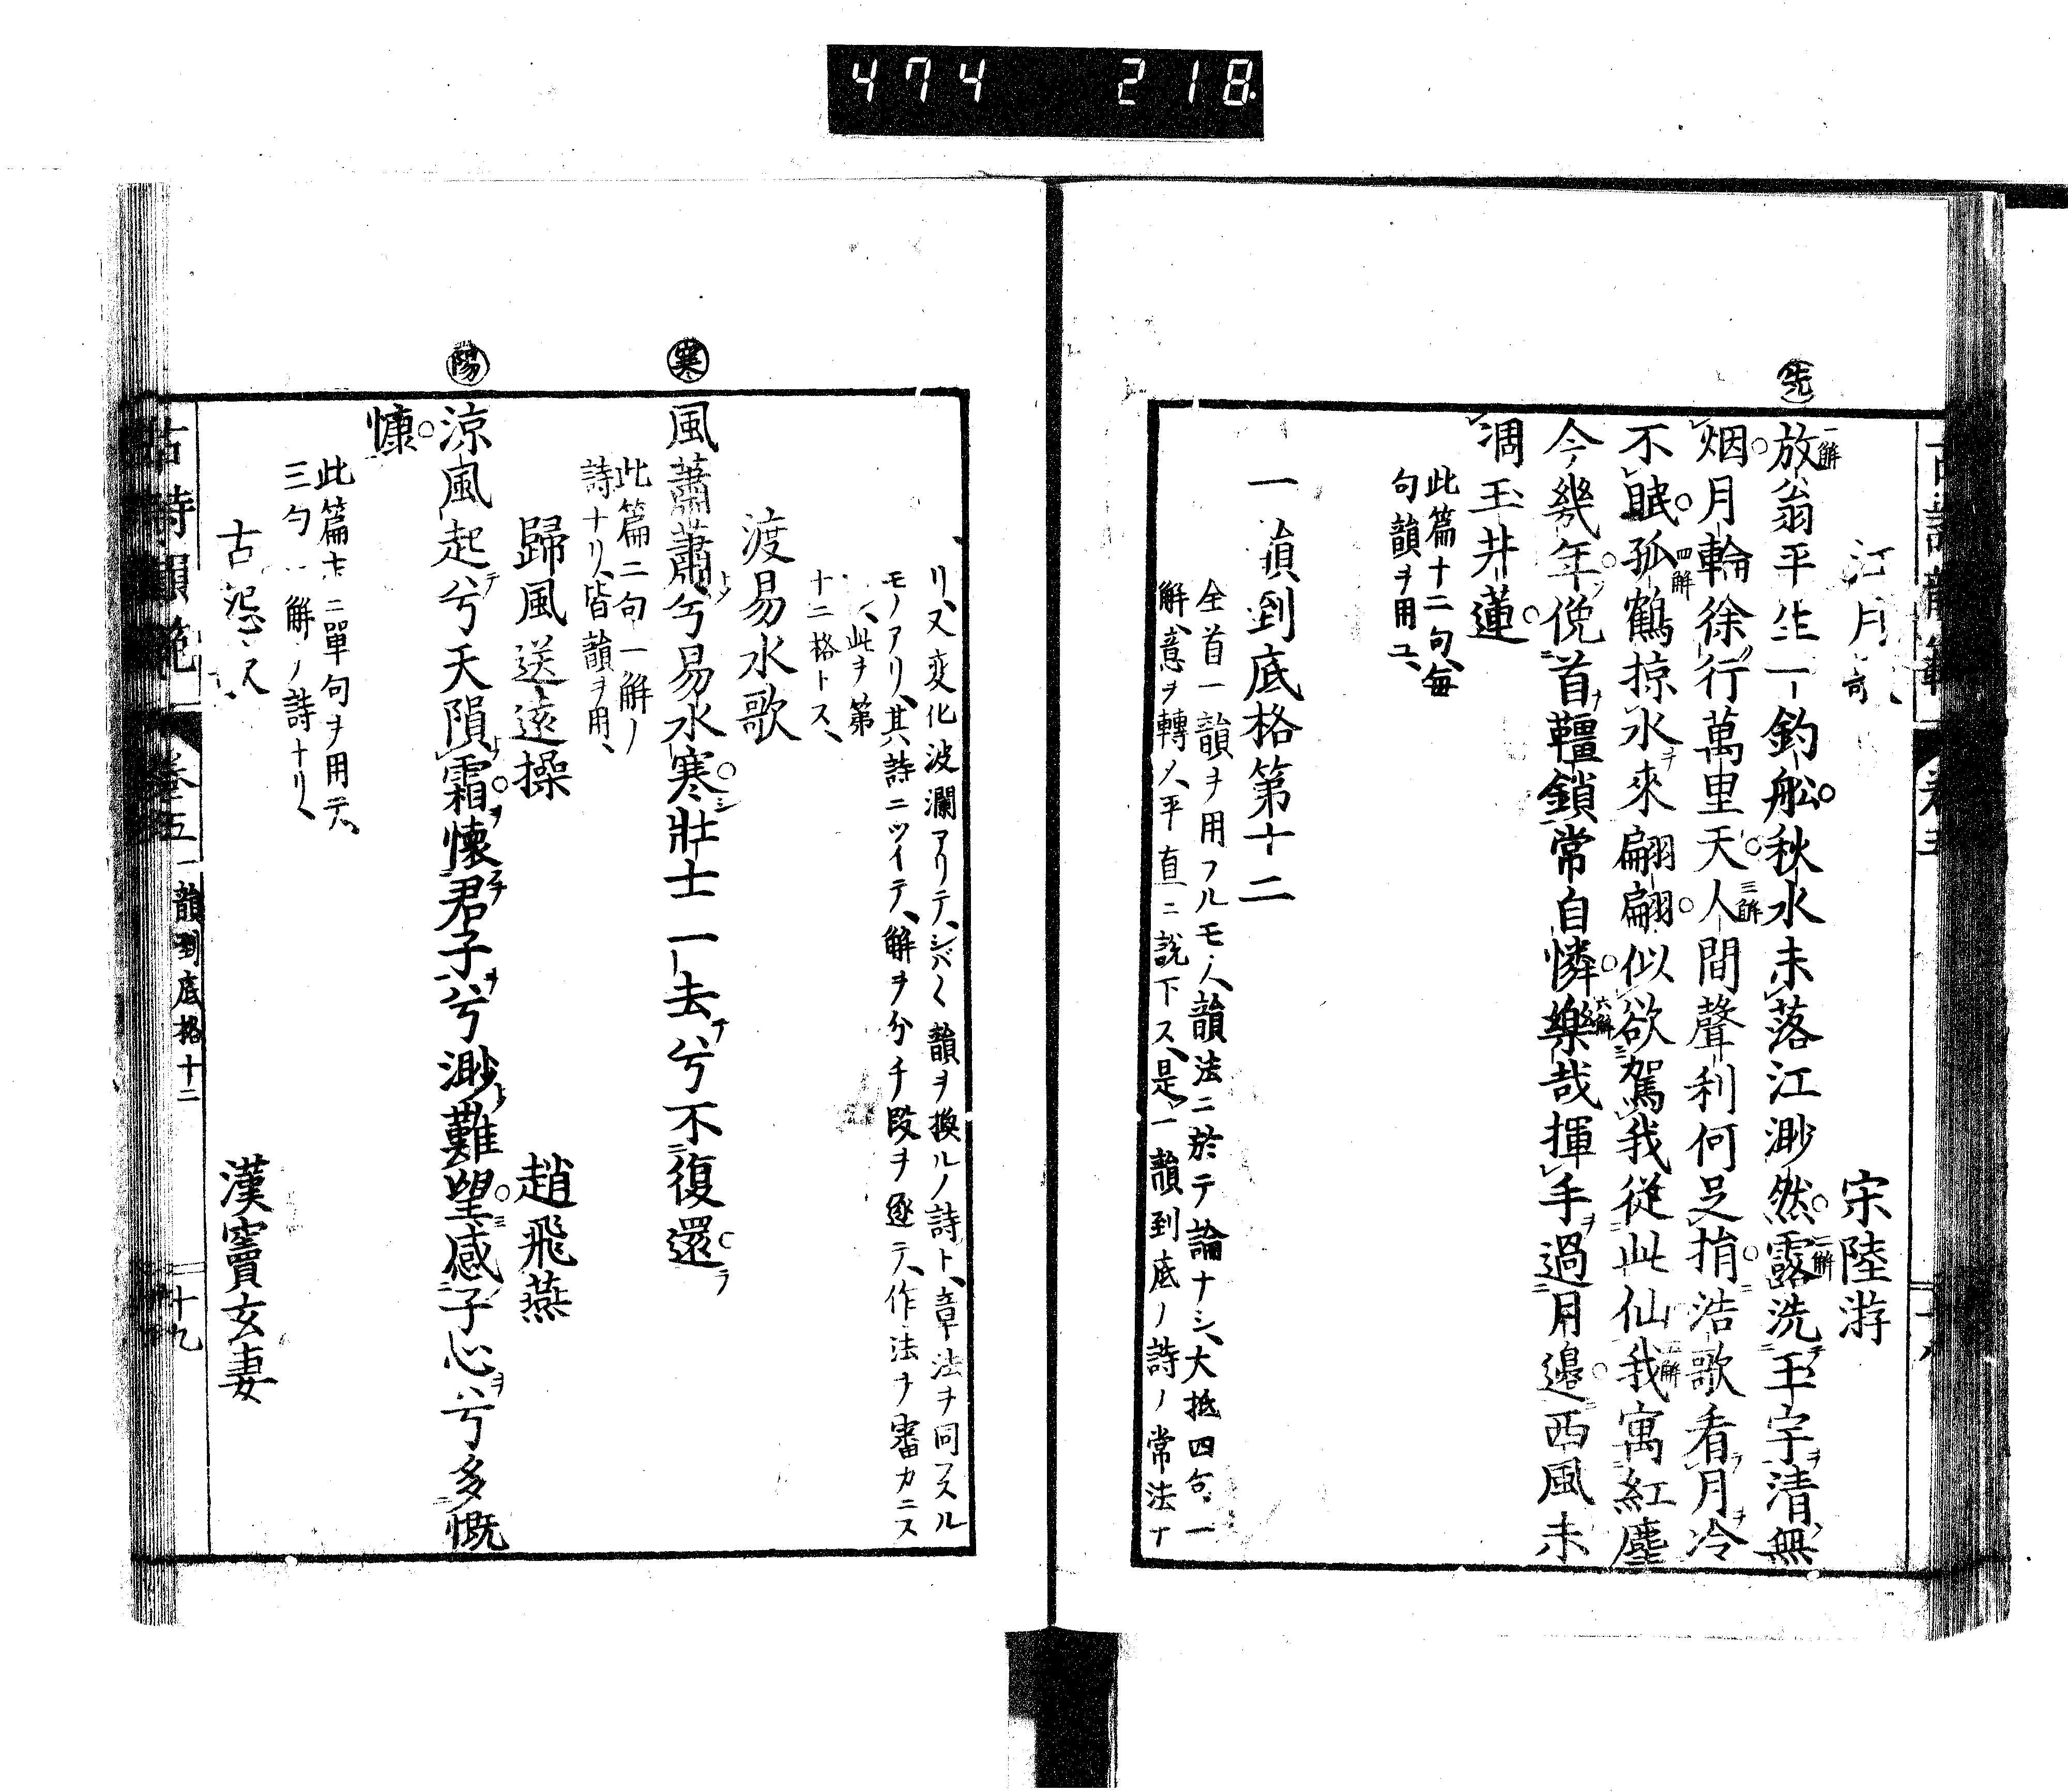 474 218
江月
宋陸游
先
一解
放翁平生一釣舩秋水未落江渺然露洗玉宇清無
二解
烟月輪徐行萬里天人間聲利何足捐浩歌看月冷
三解
不眠孤鶴掠水來翩翩似欲駕我從此仙我寓紅塵
四解
今幾年俛首韁鎖常自憐樂哉揮手過月邊西風未
六解
凋玉井蓮
此篇十二句毎
句韻ヲ用ユ
一韻到底格第十二
全首一韻ヲ用フルモノハ韻法ニ於テ論ナシ大抵四句一
解意ヲ轉ノ平直ニ說下ス是一韻到底ノ詩ノ常法ナ
リ又変化波瀾アリテシバ〱韻ヲ換ルノ詩ト章法ヲ同スル
モノアリ其詩ニツイテ解ヲ分チ段ヲ逐テ作法ヲ審カニス
此ヲ第
十二格トス
渡易水歌
寒
風蕭蕭兮易水寒壯士一去兮不復還
此篇二句一解ノ
詩ナリ皆韻ヲ用
歸風送遠操
趙飛燕
陽
涼風起兮天隕霜懷君子兮渺難望感子心兮多慨
慷
此篇末ニ單句ヲ用テ
三句一解ノ詩ナリ
古怨
漢竇玄妻
古詩韻範
卷五
一韻到底格十二
十九